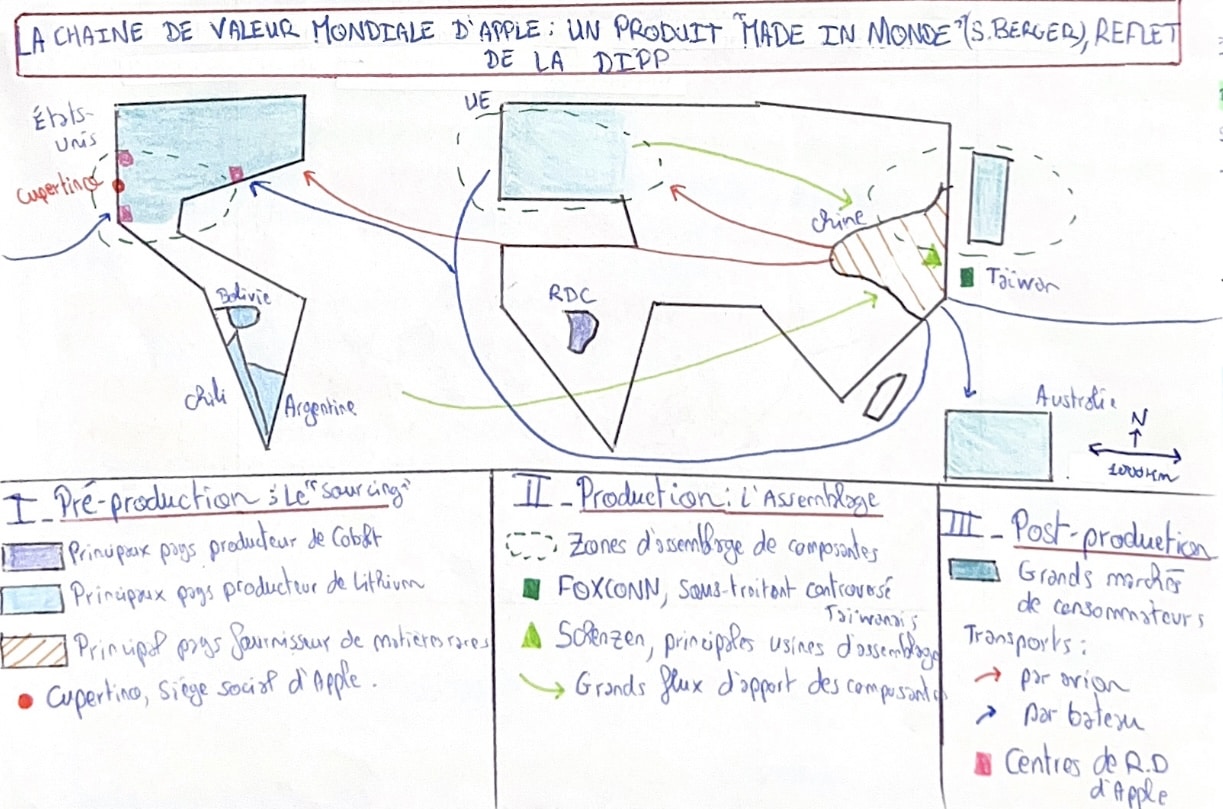 LA CHAINE DE VALEUR MONDIALE D'APPLE : UN PRODUIT "MADE IN MONDE" (S.BERGER), REFLET
DE LA DIPP
États-
Unis
UE
Cupertino
Chine
Taïwan
Bolivie
RDC
Chili
Argentine
Australie
N
1000 Km
I - Pré-production : Le "sourcing"
Principaux pays producteur de Cobalt
Principaux pays producteur de Lithium
Principal pays fournisseur de matières rares
Cupertino, Siège social d'Apple.
II - Production : L'Assemblage
Zones d'assemblage de composantes
FOXCONN, sous-traitant controversé
Taïwanais
Schenzen, principales usines d'assemblage
Grands flux d'apport des composants
III - Post-production
Grands marchés
de consommateurs
Transports :
par avion
par bateau
Centres de R.D
d'Apple